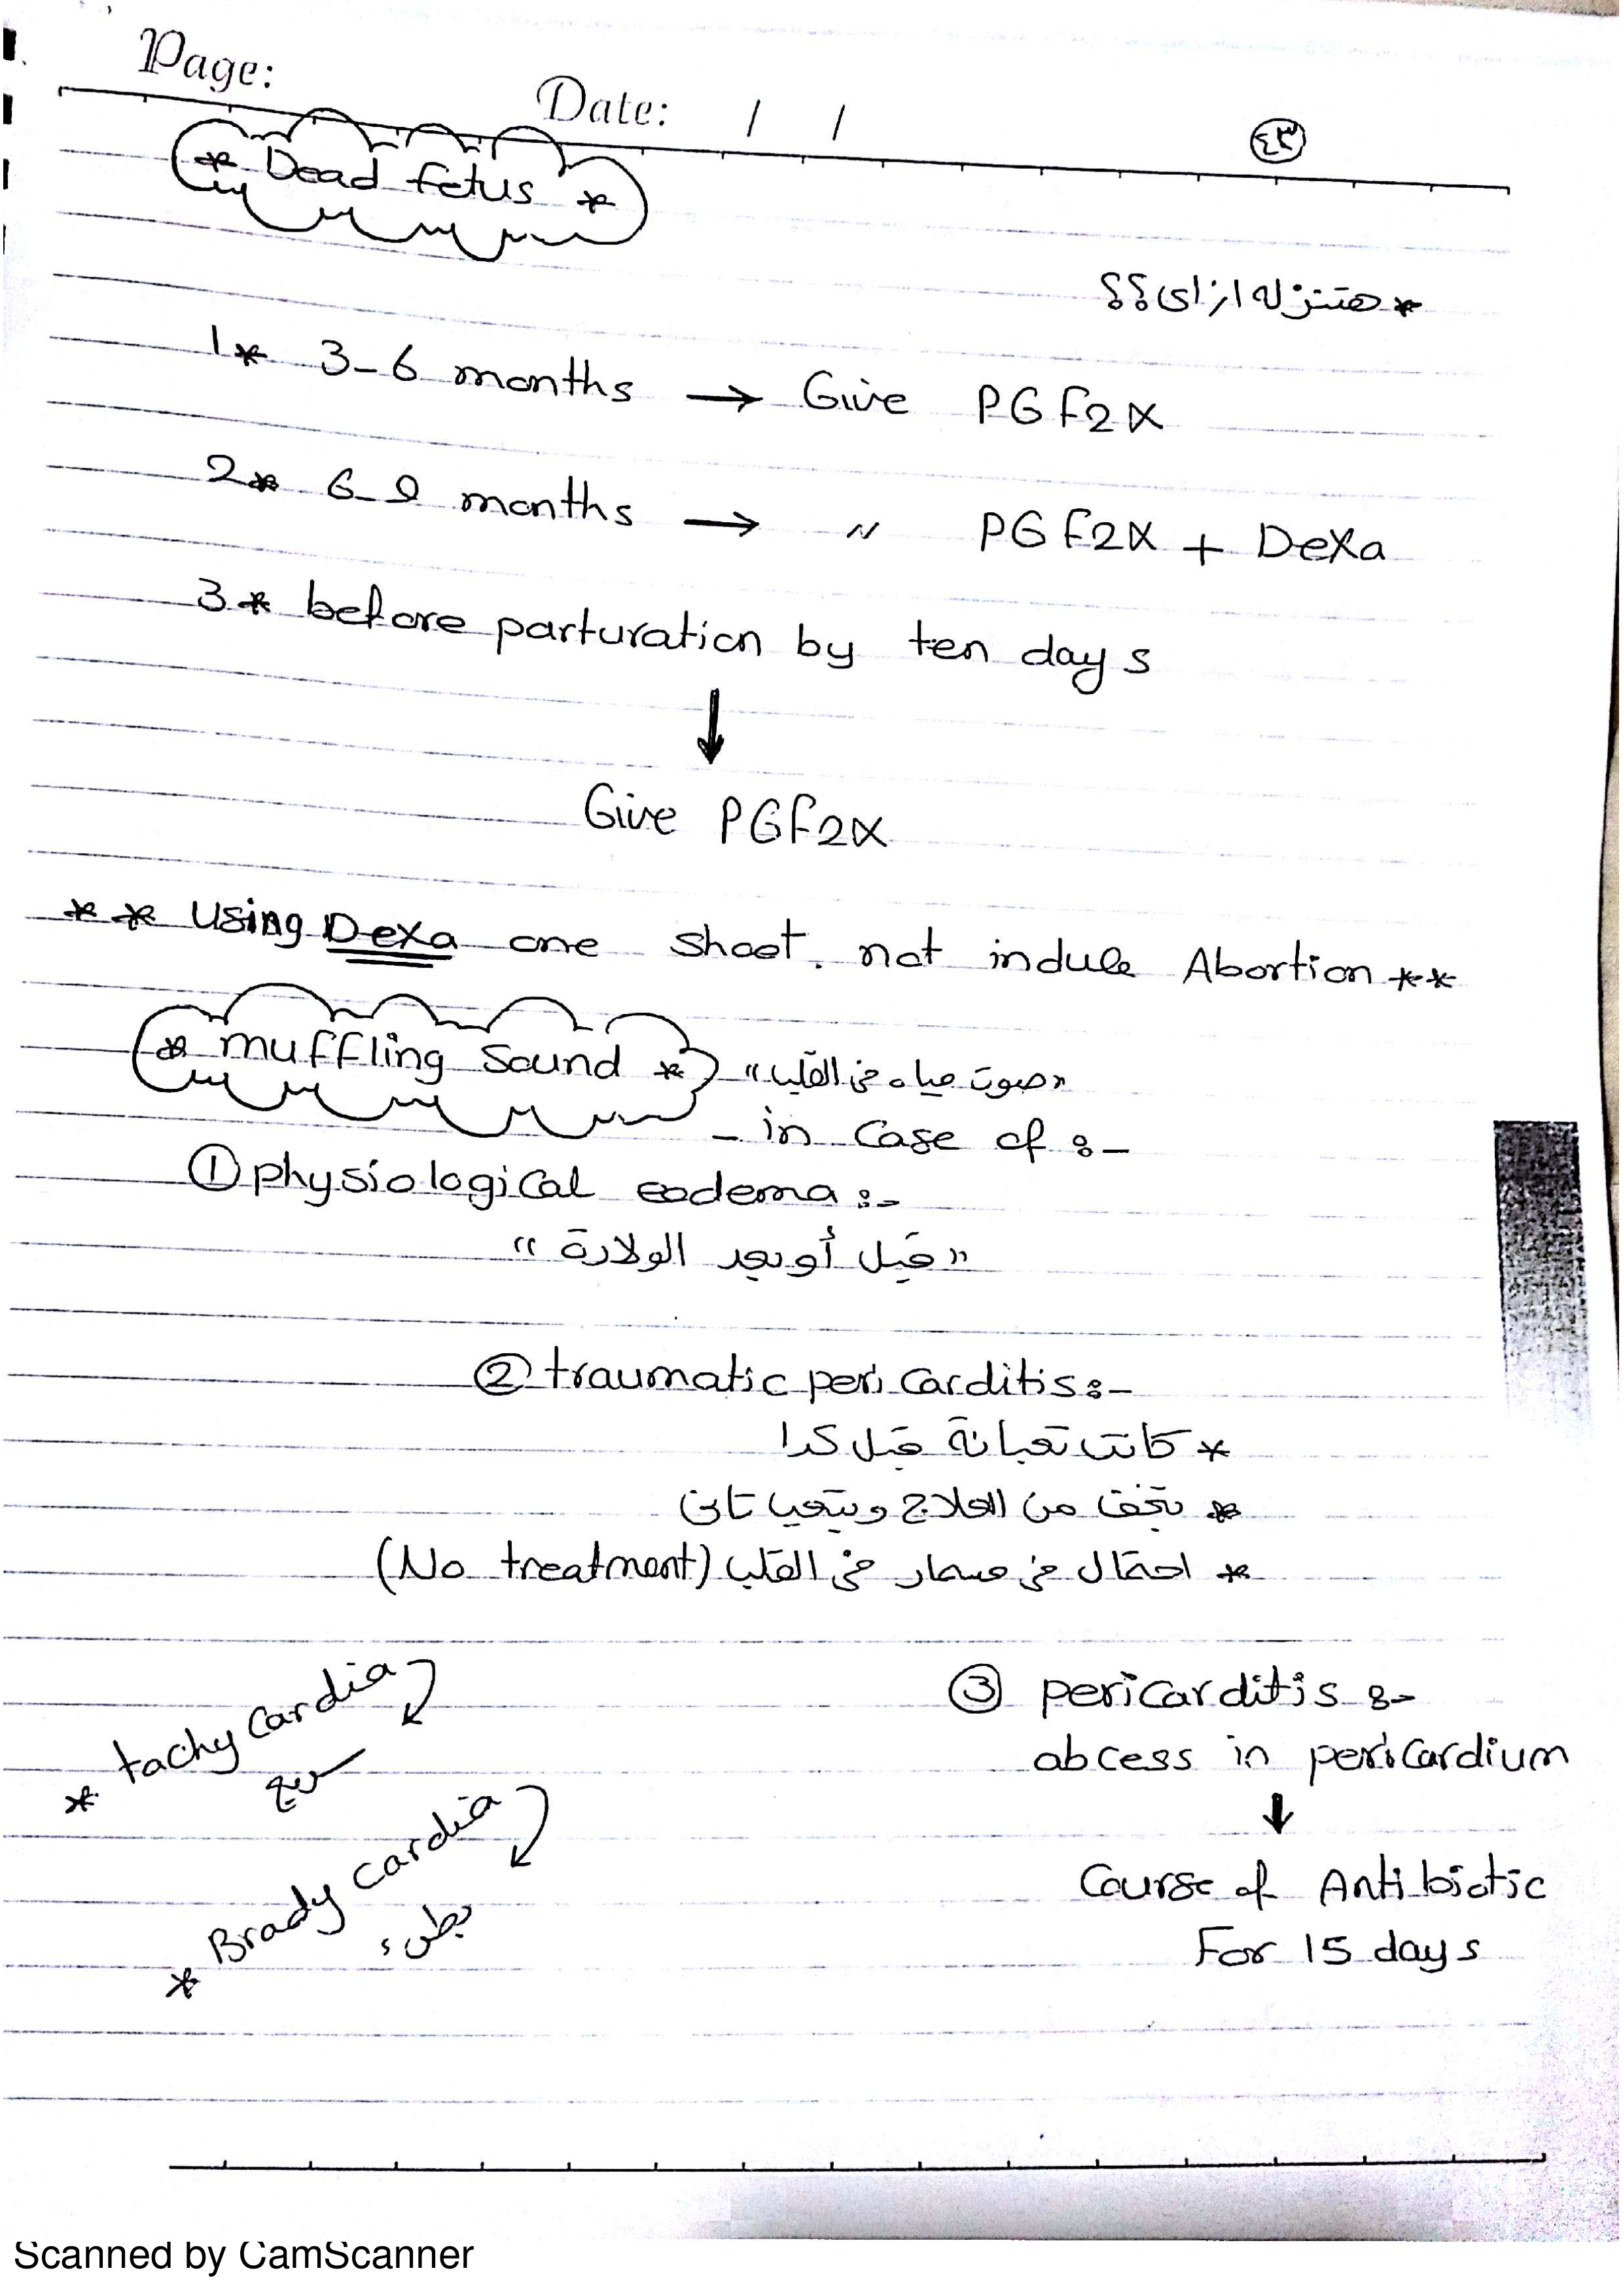 Page:
Date: / /
٤٣
* Dead fetus *
* هتنزله ازاى؟؟
1* 3-6 months → Give PGF2α
2* 6-9 months → " PGF2α + Dexa
3* before parturation by ten days
↓
Give PGF2α
** Using Dexa one shoot. not induce Abortion **
* muffling Sound * "صوت مياه فى القلب"
- in Case of :-
① physiological eodema :-
"قبل أو بعد الولادة"
② traumatic peri carditis :-
* كانت تعبانة قبل كدا
* بتخف من العلاج وبتعيا تانى
* احتمال فى مسمار فى القلب (No treatment)
③ pericarditis :-
abcess in pericardium
↓
Course of Antibiotic
For 15 days
* tachy cardia
سريع
* Brady cardia
بطىء
Scanned by CamScanner